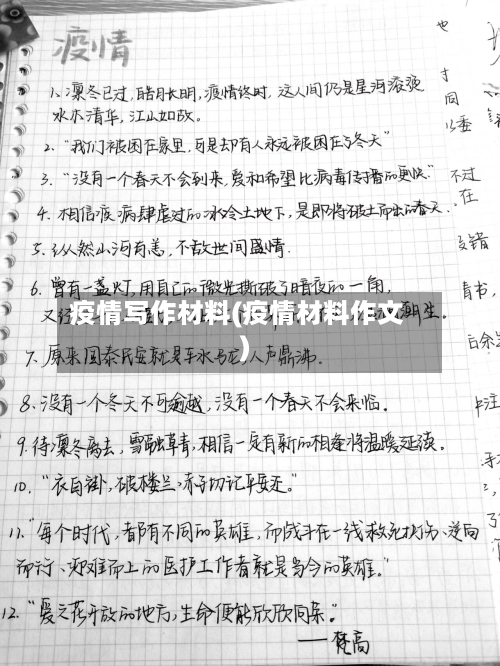 疫情
1. 凛冬已过，皓月长明，疫情终时，这人间仍是星河滚烫
水木清华，江山如故。
2. "我们被困在家里，可是却有人永远被困在了冬天"
3. "没有一个春天不会到来，爱和希望比病毒传播的更快."
4. 相信疫病肆虐过的冰冷土地下，是即将破土而出的春天.
5. 纵然山河有恙，不敌世间盛情.
6. 曾有一盏灯，用自己的微光撕破了暗夜的一角，
又经
生.
疫情写作材料(疫情材料作文
)
7. 原来国泰民安就是车水马龙，人声鼎沸.
8. 没有一个冬天不可逾越，没有一个春天不会来临.
9. 待凛冬离去，雪融草青，相信一定有新的相逢将温暖延续.
10. "衣白褂，破楼兰，赤子切记平安还."
11. "每个时代，都有不同的英雄，而战斗在一线救死扶伤、逆向
而行、迎难而上的医护工作者就是当今的英雄."
12. "爱之花开放的地方，生命便能欣欣向荣."
——梵高
也
寸
同
以委
不过
在
青书，